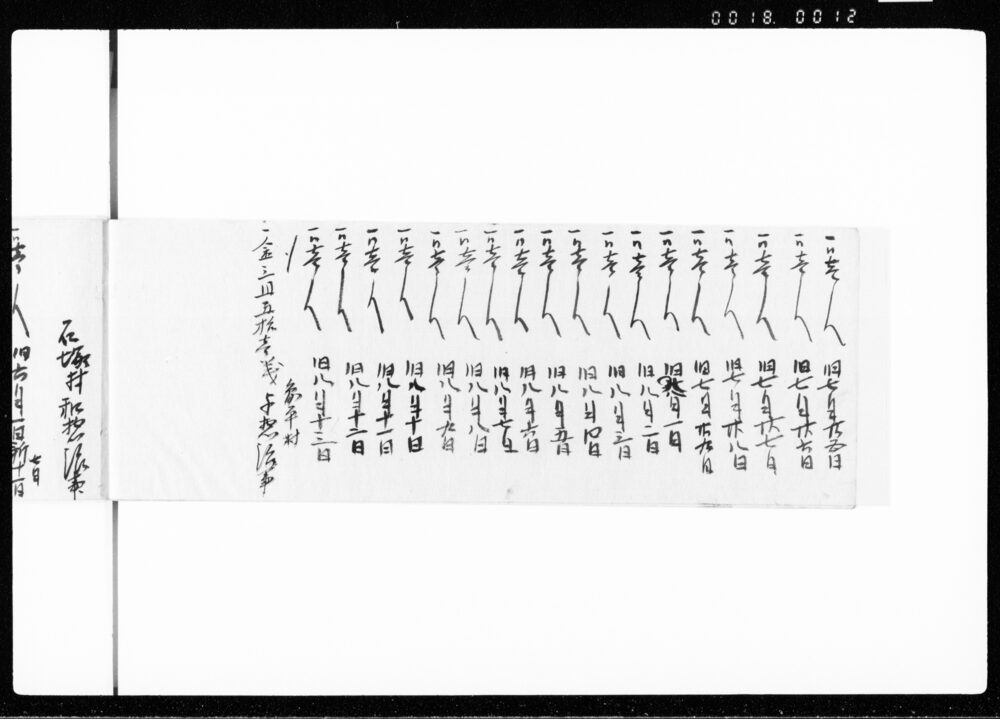 0018. 0012
一〆壱人 旧七月廿五日
一〆壱人 旧七月廿六日
一〆壱人 旧七月廿七日
一〆壱人 旧七月廿八日
一〆壱人 旧七月廿九日
一〆壱人 旧八月一日
一〆壱人 旧八月二日
一〆壱人 旧八月三日
一〆壱人 旧八月四日
一〆壱人 旧八月五日
一〆壱人 旧八月六日
一〆壱人 旧八月七日
一〆壱人 旧八月八日
一〆壱人 旧八月九日
一〆壱人 旧八月十日
一〆壱人 旧八月十一日
一〆壱人 旧八月十二日
一〆壱人 旧八月十三日
村
一金三円五拾壱銭
石塚村
壱人 旧六月一日新十一日
七月